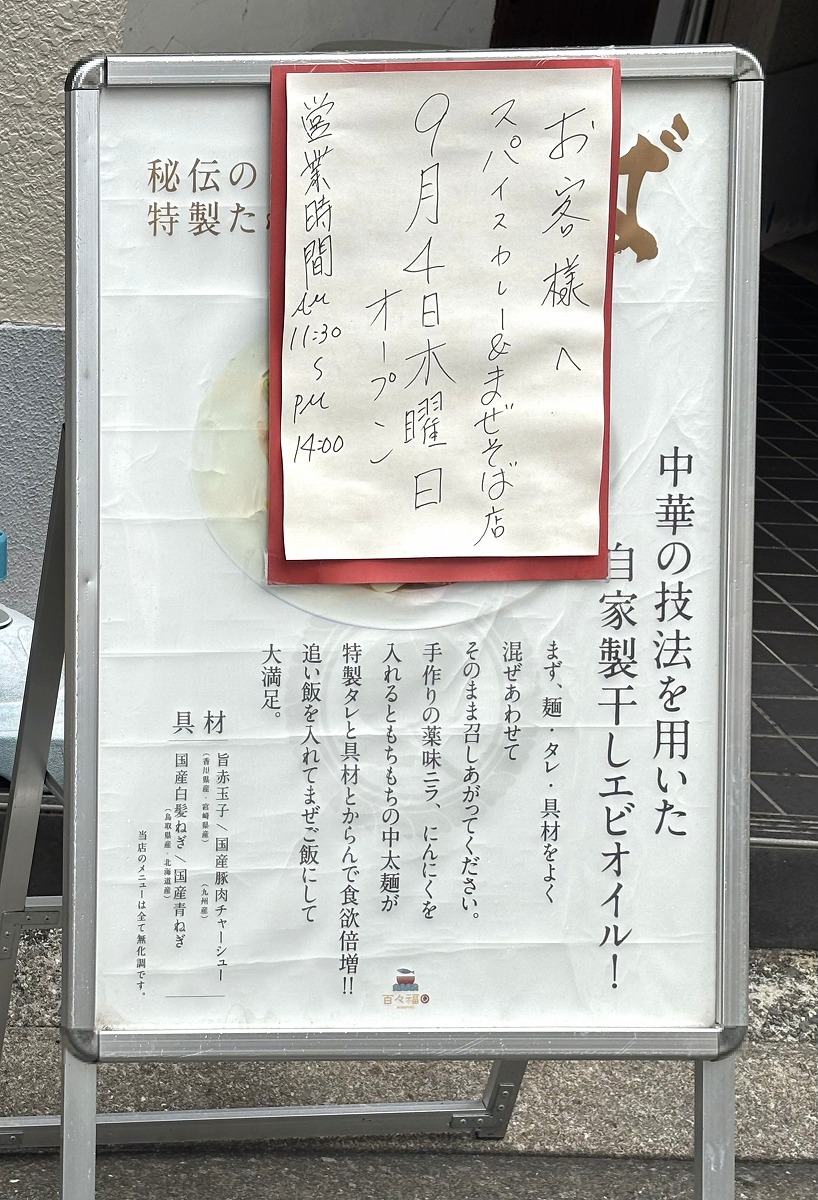 お客様へ
スパイスカレー&まぜそば店
9月4日木曜日
オープン
営業時間
AM
11:30
〜
PM
14:00
ば
秘伝の
特製た
中華の技法を用いた
自家製干しエビオイル！
まず、麺・タレ・具材をよく
混ぜあわせて
そのまま召しあがってください。
手作りの薬味ニラ、にんにくを
入れるともちもちの中太麺が
特製タレと具材とからんで食欲倍増!!
追い飯を入れてまぜご飯にして
大満足。
具材
旨赤玉子／国産豚肉チャーシュー
（香川県産・宮崎県産）（九州産）
国産白髪ねぎ／国産青ねぎ
（鳥取県産・北海道産）
当店のメニューは全て無化調です。
百々福